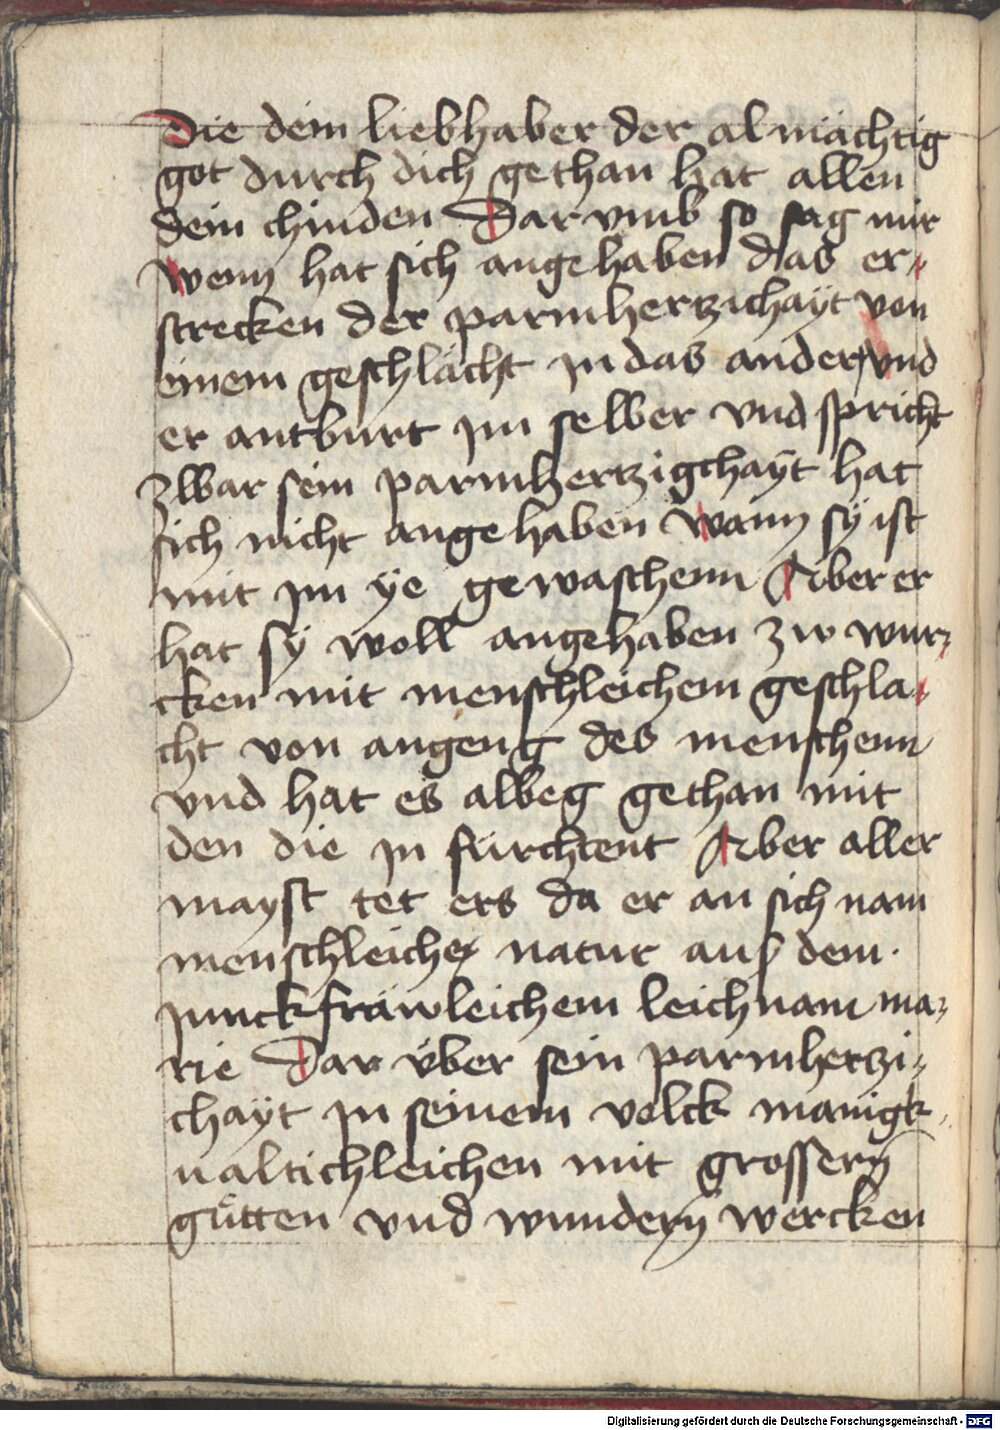 Die dein liebhaber der almächtig
got durch dich gethan hat allen
dein chinden Dar vmb so sag mir
wenn hat sich angehaben das er-
strecken der parmhertzichayt von
einem geschlächt in das ander vnd
er antburt im selber vnd spricht
zwar sein parmhertzigchayt hat
sich nicht angehaben wann sy ist
mit im ye gewaschenn Aber er
hat sy woll angehaben zw wur-
cken mit menschleichem geschla-
cht von angeng des menschenn
vnd hat es albeg gethan mit
den die in fürchtent Aber aller
mayst tet ers da er an sich nam
menschleiche natur aus dem
junckfräwleichem leichnam ma-
rie Dar über sein parmhertzi-
chayt in seinem volck manigk
ualtichleichen mit grossern
gütten vnd wundern wercken
Digitalisierung gefördert durch die Deutsche Forschungsgemeinschaft - DFG